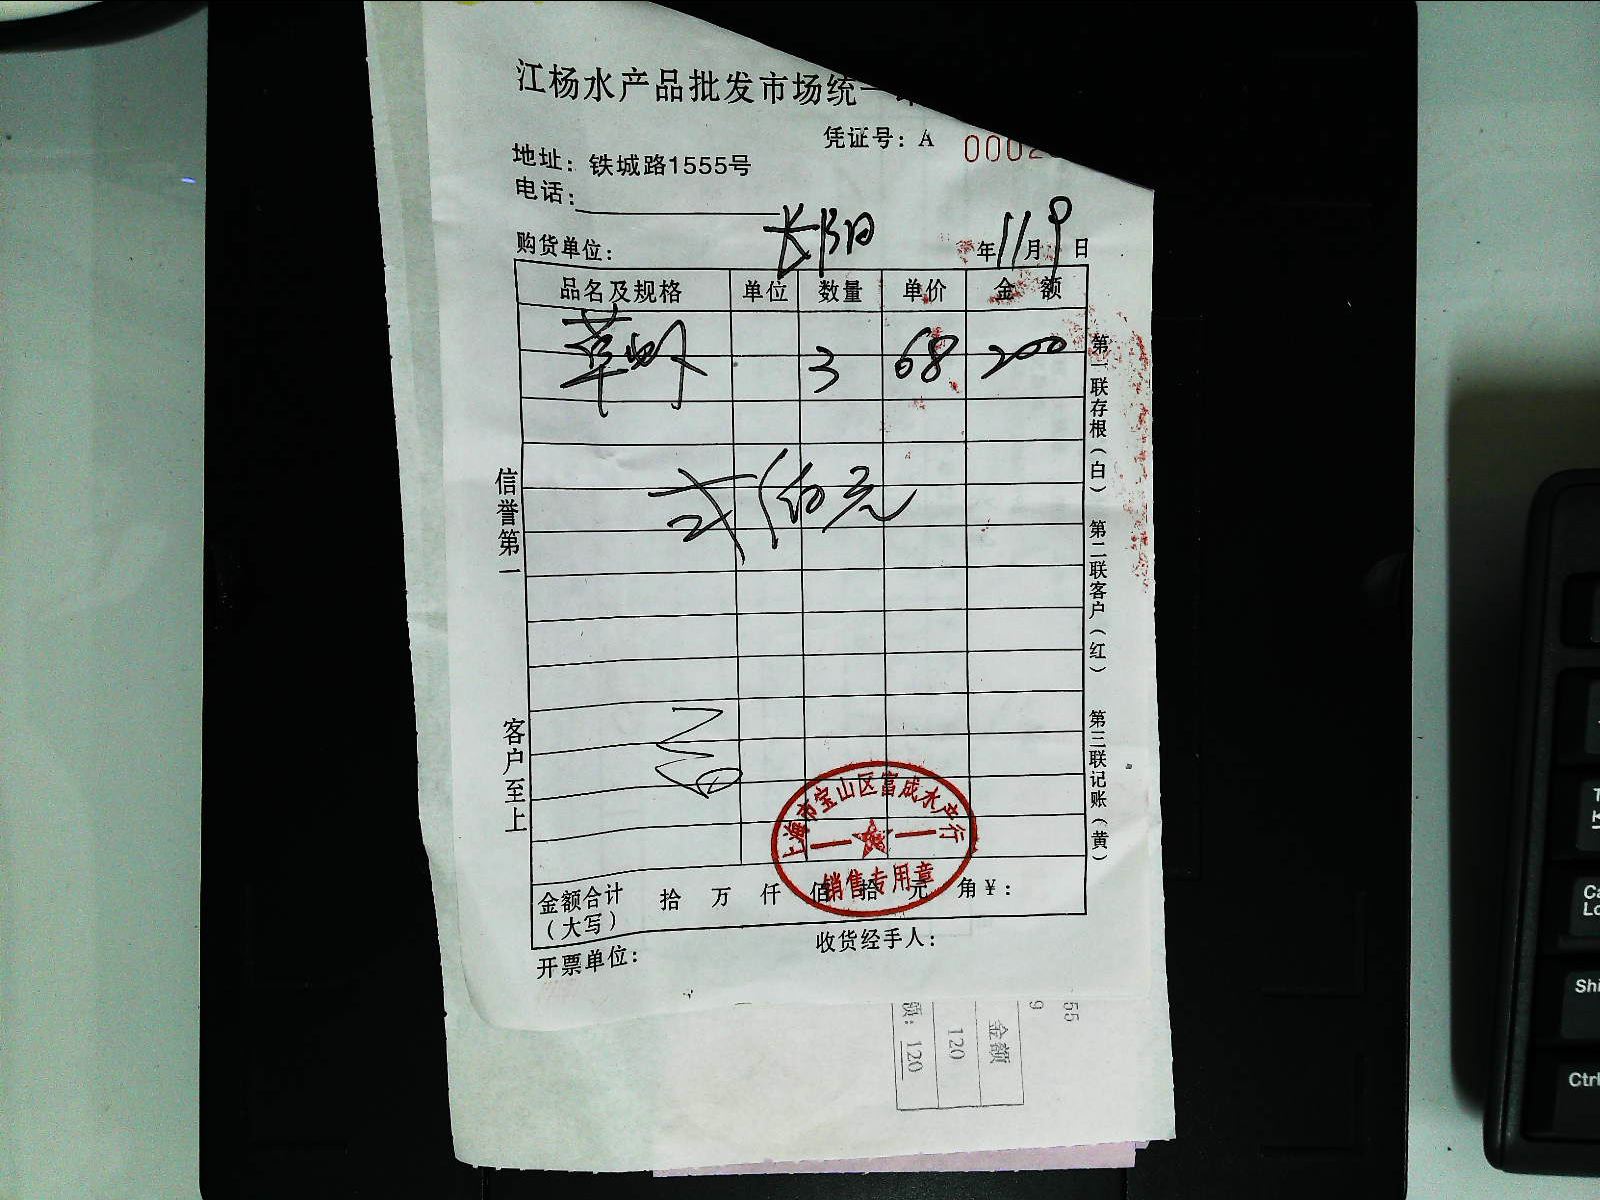 江杨水产品批发市场统一
凭证号：A 0002
地址：铁城路1555号
电话：
购货单位：长阳 年11月9日
品名及规格 单位 数量 单价 金额
草虾 3 68 200
弍佰元
金额合计（大写） 拾 万 仟 佰 拾 元 角 ¥：
开票单位： 收货经手人：
信誉第一
客户至上
第一联存根（白）
第二联客户（红）
第三联记账（黄）
上海市宝山区富成水产行
销售专用章
金额
120
额：120
55
9
Shi
Ctrl